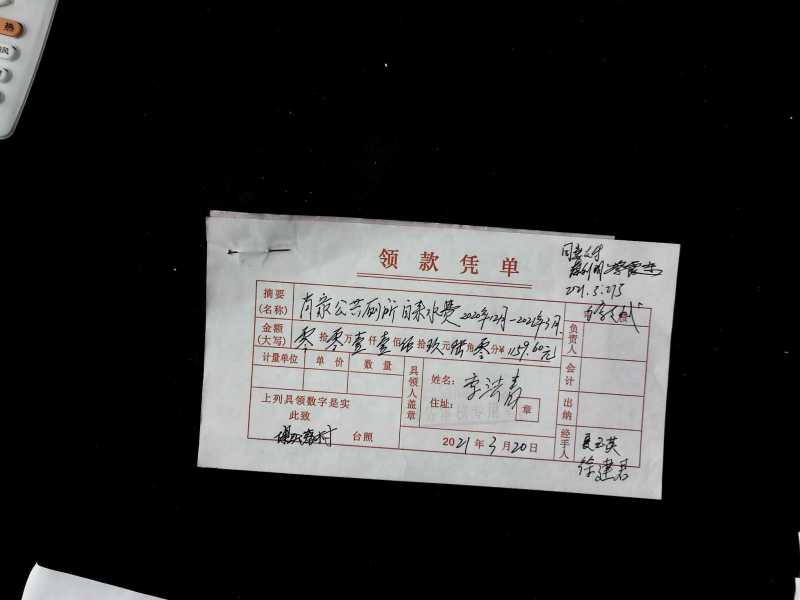 热
风
领款凭单
同意支付
2021.3.23
摘要(名称) 公共厕所自来水费2020年12月-2021年3月.
金额(大写) 零拾零万壹仟壹佰伍拾玖元陆角零分¥1159.60元
负责人
计量单位 单价 数量
会计
具领人盖章
姓名: 李浩青
住址:
章
上列具领数字是实
此致
出纳
台照
2021年3月20日
经手人 夏玉英
徐建君